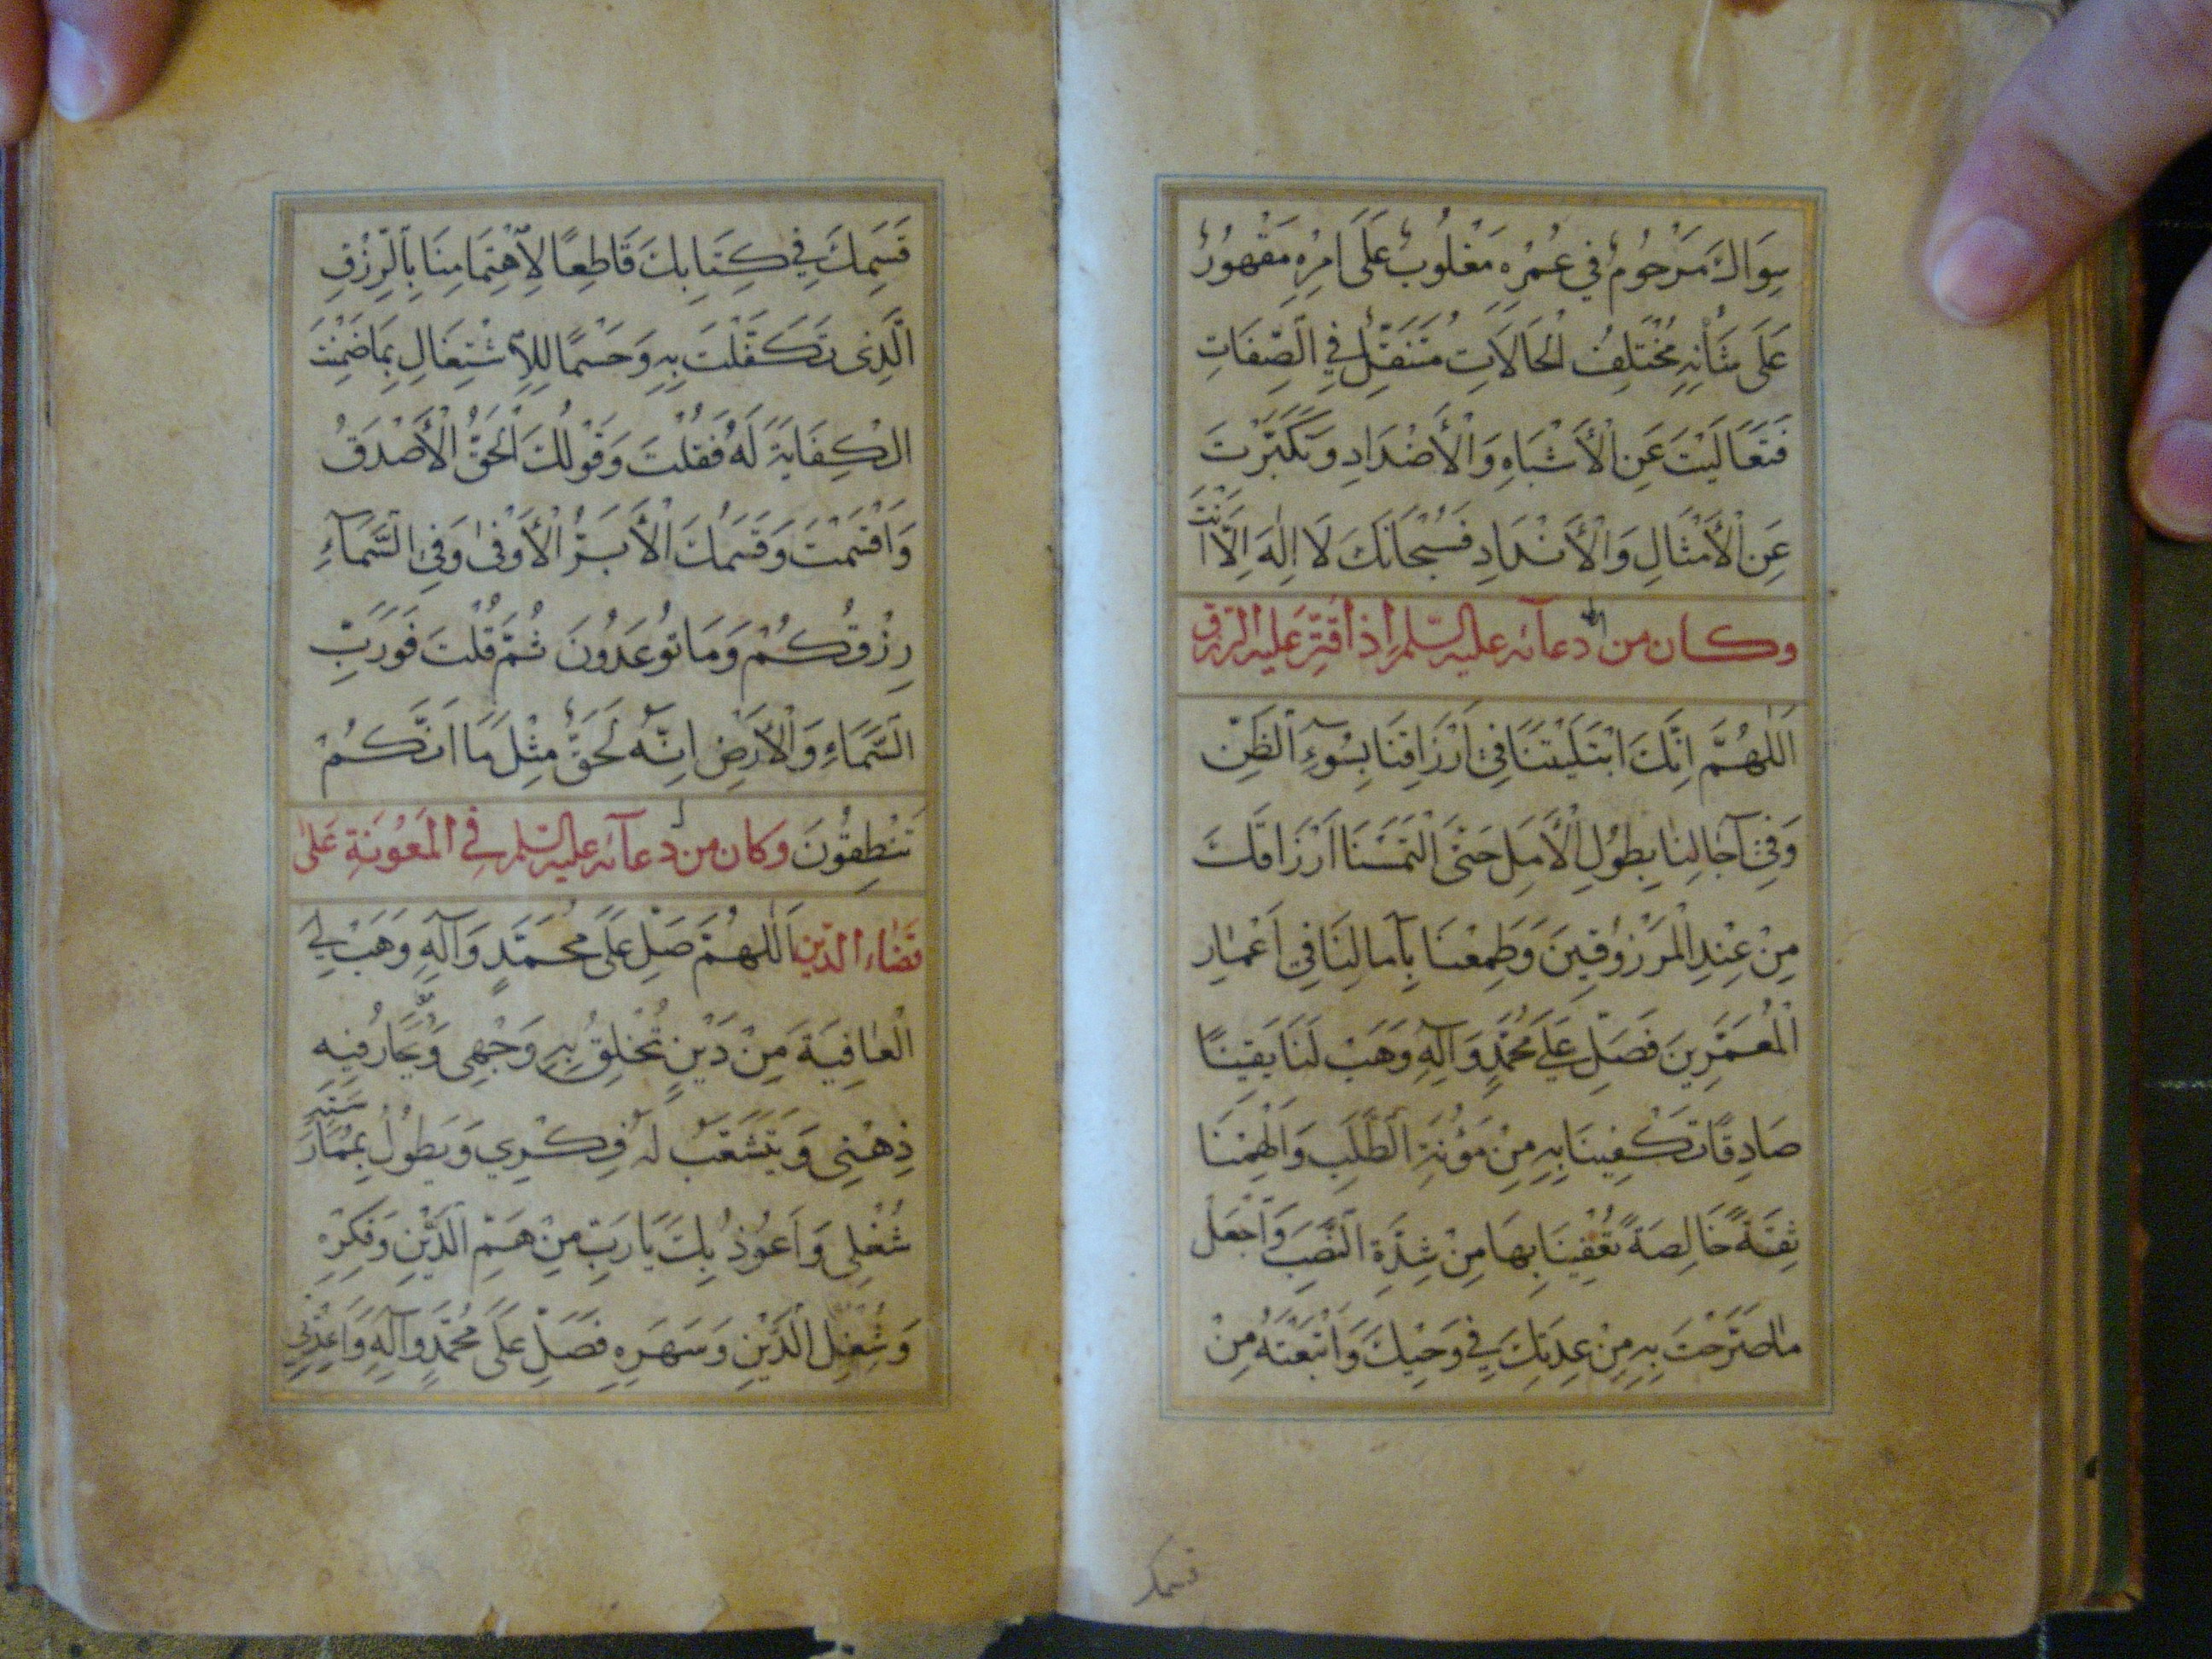 سِوَاكَ مَرْحُومٌ في عُمُرِهِ مَغْلُوبٌ عَلَى اَمْرِهِ مَقْهُورٌ
عَلَى شَأْنِهِ مُخْتَلِفُ الْحَالَاتِ مُتَنَقِّلٌ فِي الصِّفَاتِ
فَتَعَالَيْتَ عَنِ الْأَشْبَاهِ وَالْأَضْدَادِ وَتَكَبَّرْتَ
عَنِ الْأَمْثَالِ وَالْأَنْدَادِ فَسُبْحَانَكَ لَا اِلٰهَ اِلَّا اَنْتَ
وكان من دعآئه عليه السّلم إذا قُتِّرَ عَليه الرّزق
اَللّٰهُمَّ اِنَّكَ ابْتَلَيْتَنَا فِي اَرْزَاقِنَا بِسُوءِ الظَّنِّ
وَفِي آجَالِنَا بِطُولِ الْأَمَلِ حَتّٰى الْتَمَسْنَا اَرْزَاقَكَ
مِنْ عِنْدِ الْمَرْزُوقِينَ وَطَمِعْنَا بِآمالِنَا فِي اَعْمَارِ
الْمُعَمَّرِينَ فَصَلِّ عَلَى مُحَمَّدٍ وَآلِهِ وَهَبْ لَنَا يَقِينًا
صَادِقًا تَكْفِينَا بِهِ مِنْ مَؤُنَةِ الطَّلَبِ وَاَلْهِمْنَا
ثِقَةً خَالِصَةً تُعْفِينَا بِهَا مِنْ شِدَّةِ النَّصَبِ وَاجْعَلْ
ما صَرَّحْتَ بِهِ مِنْ عِدَتِكَ فِي وَحْيِكَ وَاَتْبَعْتَهُ مِنْ
قسمك
قَسَمِكَ فِي كِتَابِكَ قَاطِعًا لِاهْتِمَامِنَا بِالرِّزْقِ
الَّذِي تَكَفَّلْتَ بِهِ وَحَسْمًا لِلِاشْتِغَالِ بِمَا ضَمِنْتَ
الْكِفَايَةَ لَهُ فَقُلْتَ وَقَوْلُكَ الْحَقُّ الْأَصْدَقُ
وَاَقْسَمْتَ وَقَسَمُكَ الْأَبَرُّ الْأَوْفٰى وَفِي السَّمَآءِ
رِزْقُكُمْ وَمَا تُوعَدُونَ ثُمَّ قُلْتَ فَوَرَبِّ
السَّمَاءِ وَالْأَرْضِ اِنَّهُ لَحَقٌّ مِثْلَ مَا اَنَّكُمْ
تَنْطِقُونَ وكان من دعآئه عليه السّلم فِي الْمَعُونَةِ عَلَى
قَضَاءِ الدَّيْنِ اَللّٰهُمَّ صَلِّ عَلَى مُحَمَّدٍ وَآلِهِ وَهَبْ لِي
الْعَافِيَةَ مِنْ دَيْنٍ تُخْلِقُ بِهِ وَجْهِي وَيُحَارُ فِيهِ
ذِهْنِي وَيَتَشَعَّبُ لَهُ فِكْرِي وَيَطُولُ بِمُمَارَسَتِهِ
شُغْلِي وَاَعُوذُ بِكَ يَا رَبِّ مِنْ هَمِّ الدَّيْنِ وَفِكْرِهِ
وَشُغْلِ الدَّيْنِ وَسَهَرِهِ فَصَلِّ عَلَى مُحَمَّدٍ وَآلِهِ وَاَعِذْنِي